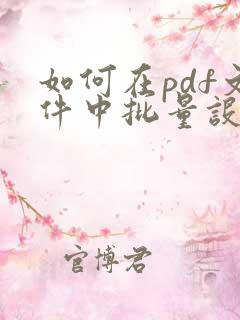 如何在pdf文
件中批量設
官博君